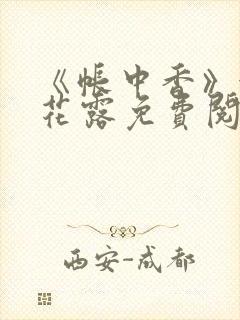 《帐中香》
花露免費閱
西安-成都